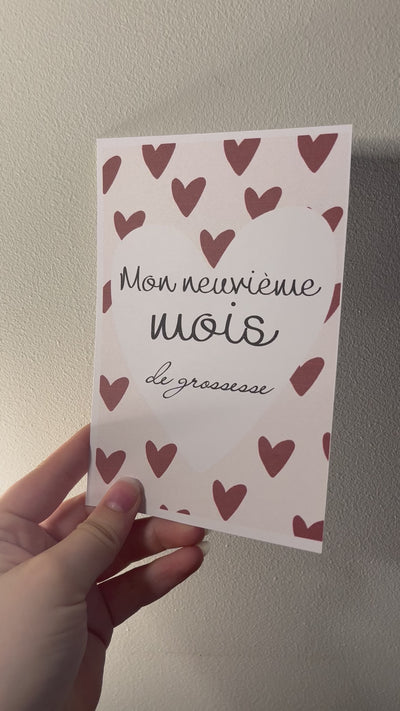 Mon neuvième
mois
de grossesse